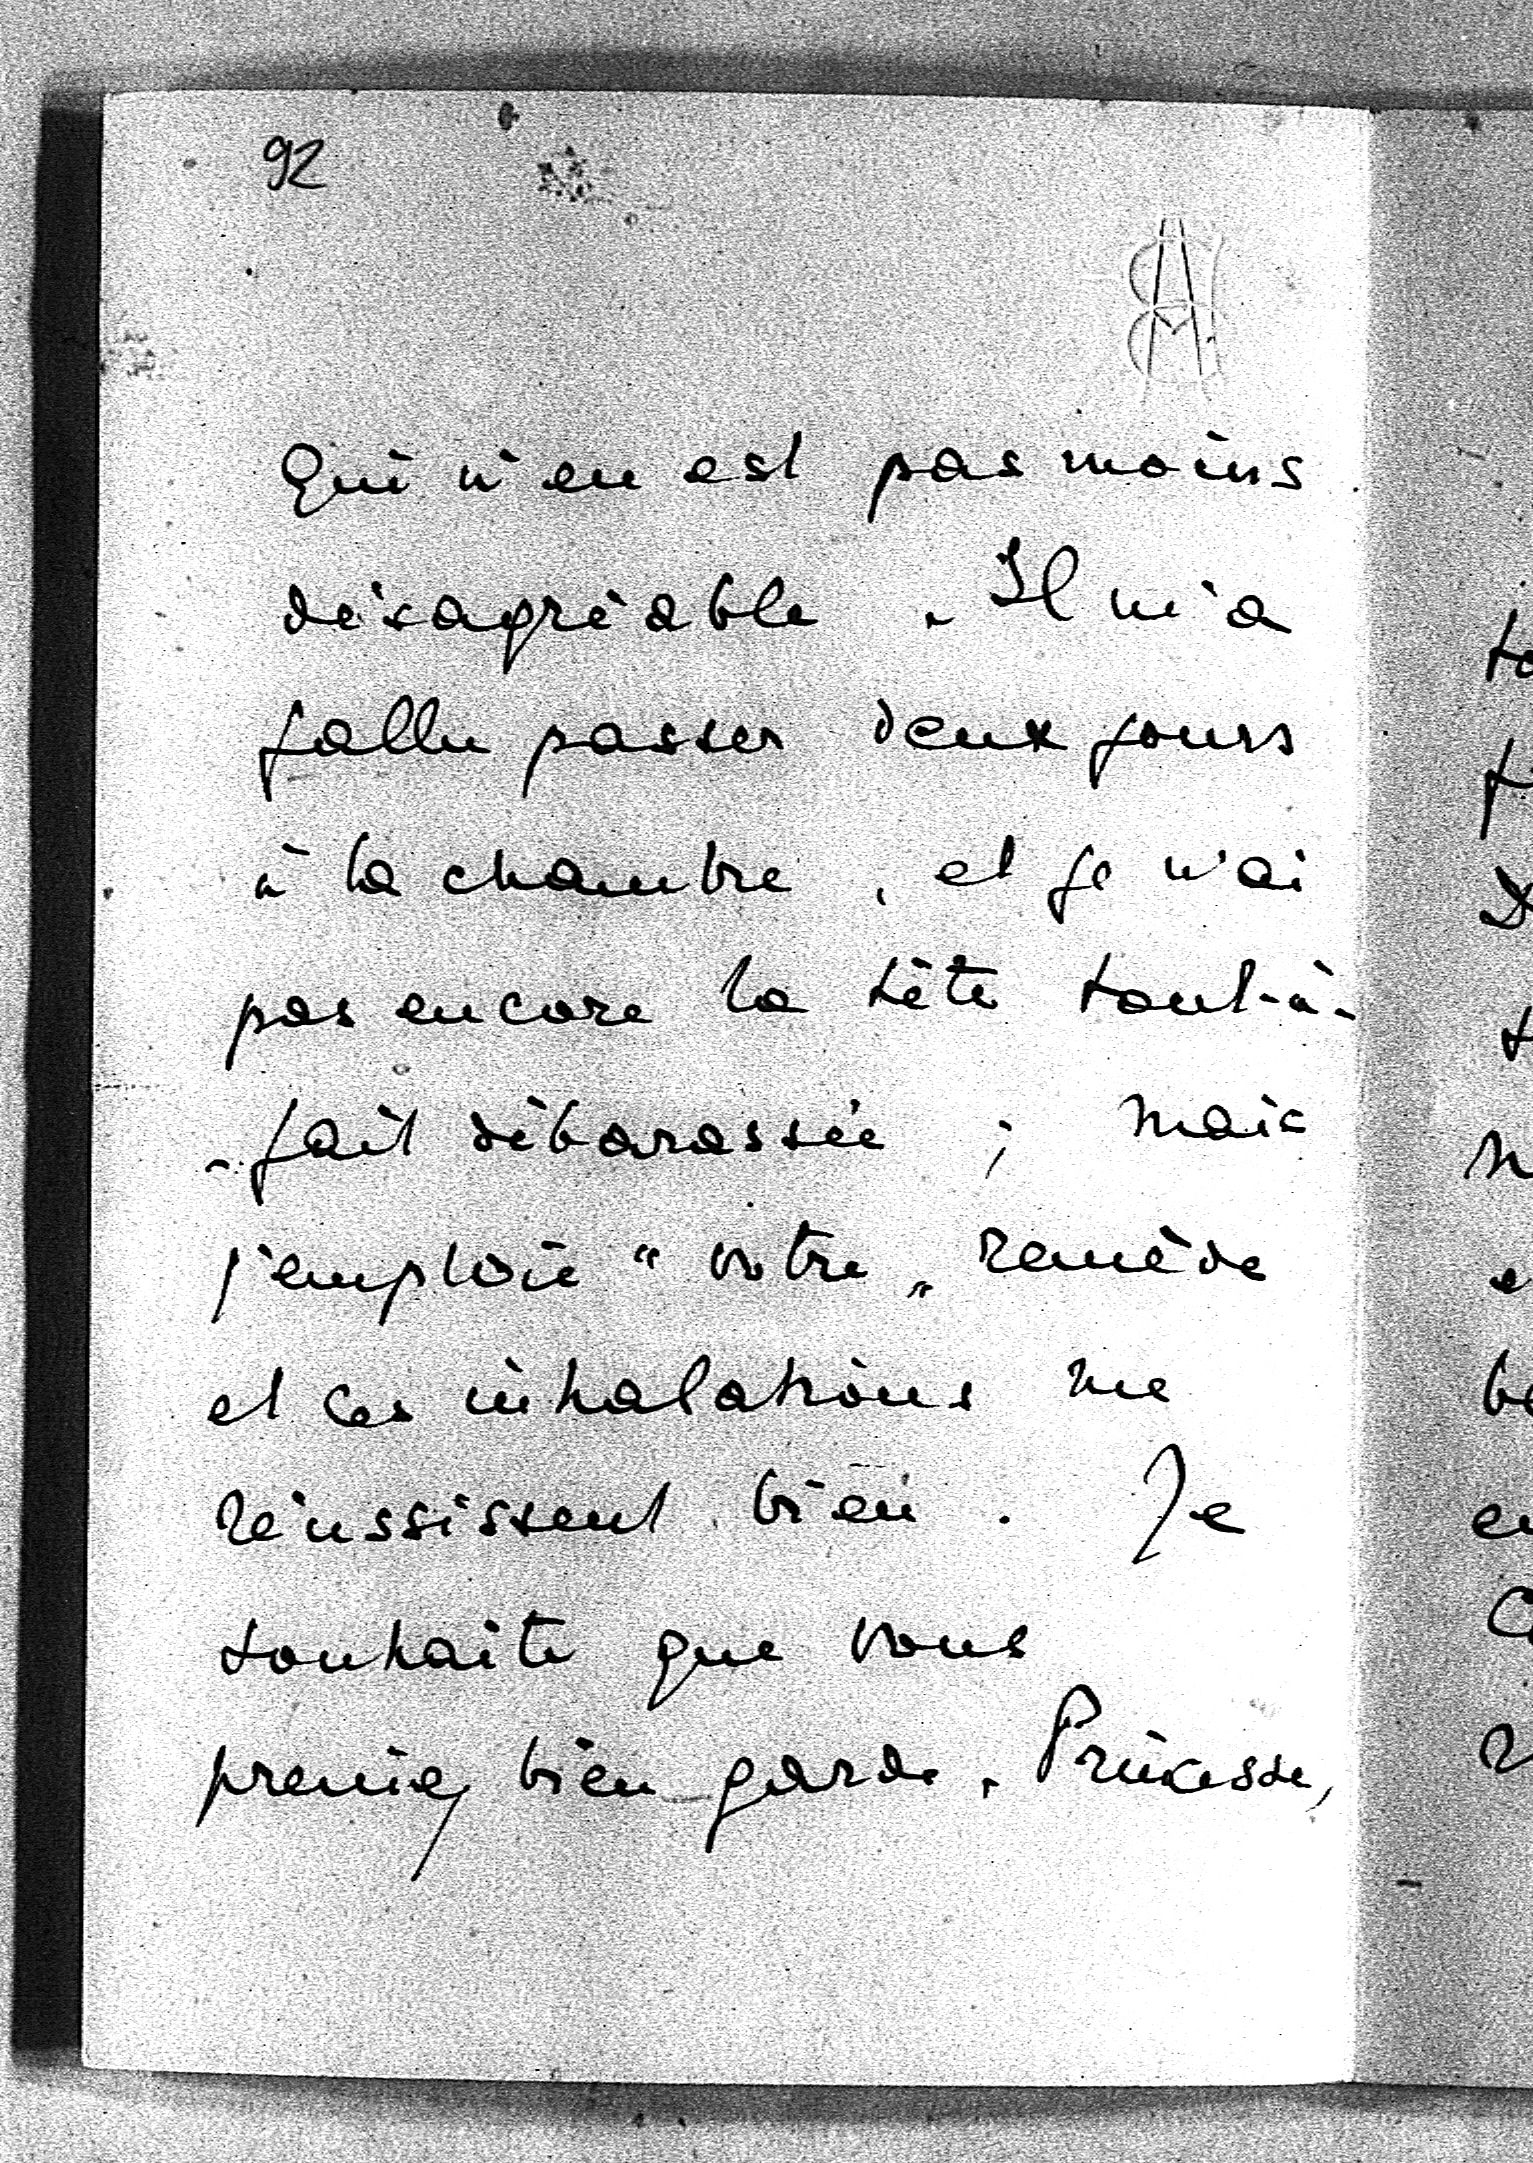 92
qui n'en est pas moins
désagréable. Il m'a
fallu passer deux jours
à la chambre, et je n'ai
pas encore la tête tout-à-
-fait débarassée ; mais
j'emploie "votre" remède
et ces inhalations me
réussissent bien. Je
souhaite que vous
preniez bien garde, Princesse,